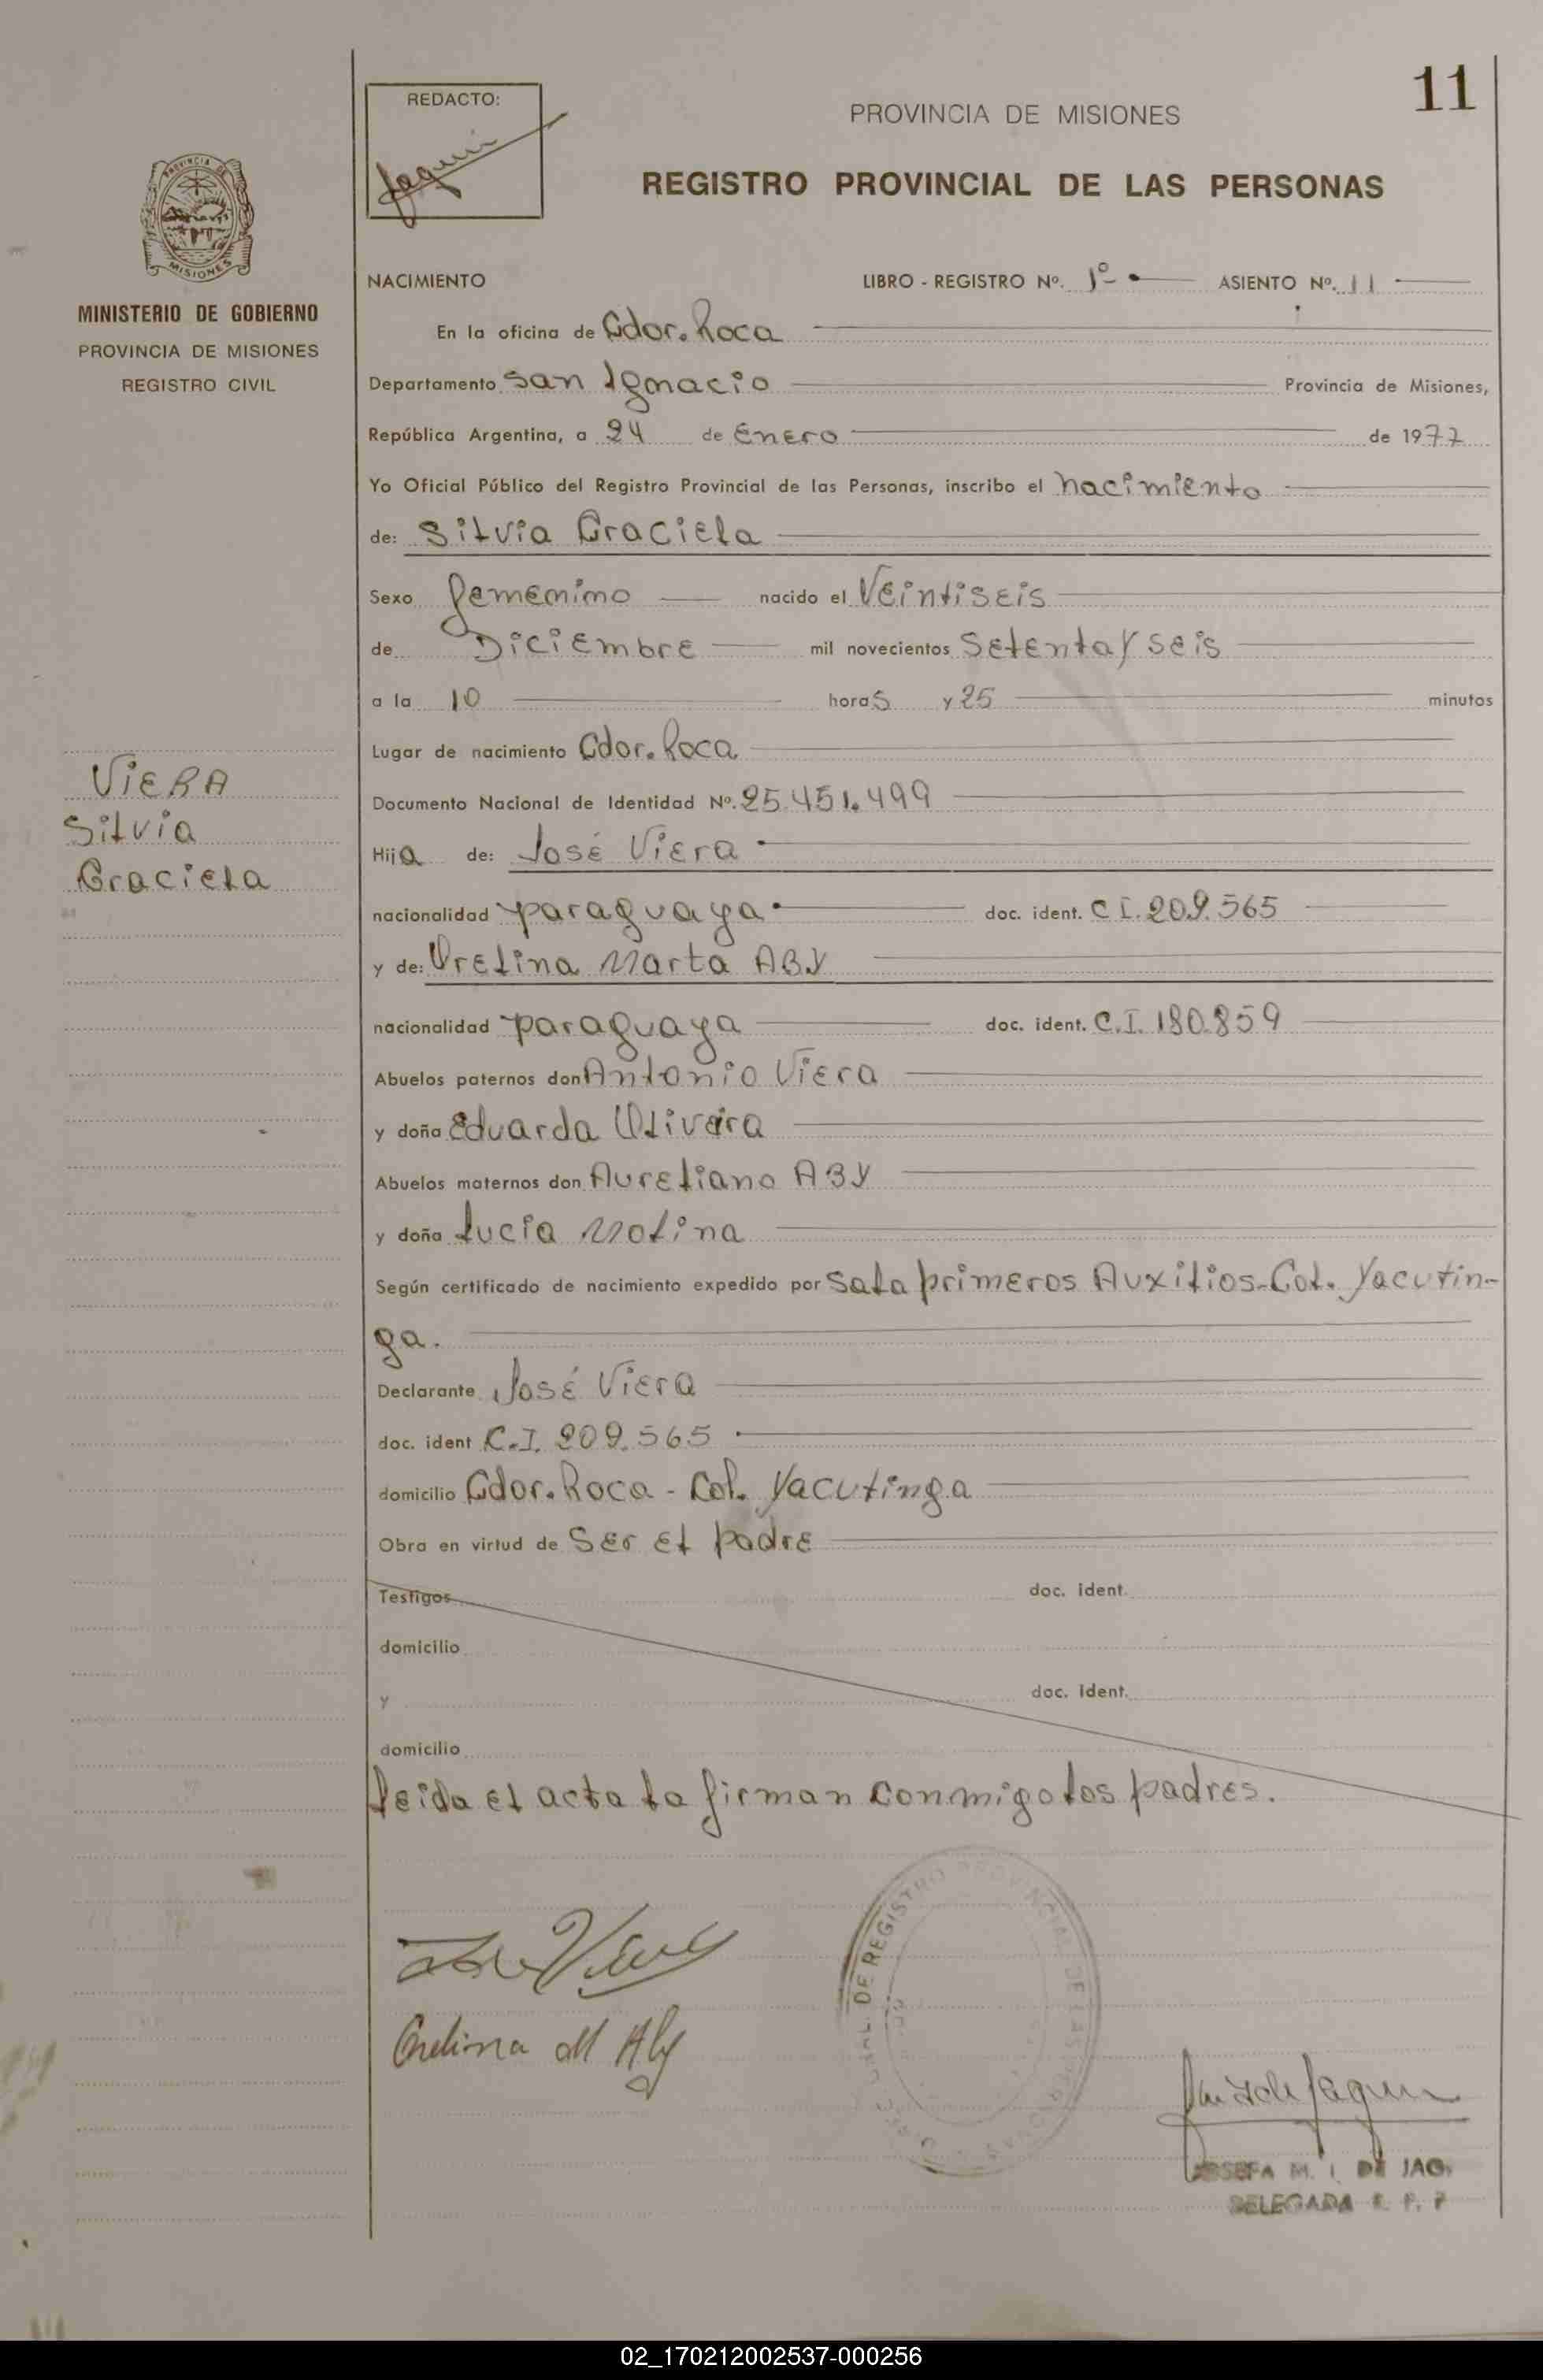 11
REDACTO:
PROVINCIA DE MISIONES
REGISTRO PROVINCIAL DE LAS PERSONAS
PROVINCIA DE
MISIONES
MINISTERIO DE GOBIERNO
PROVINCIA DE MISIONES
REGISTRO CIVIL
NACIMIENTO LIBRO - REGISTRO Nº. 1º ASIENTO Nº. 11
En la oficina de Gdor. Roca
Departamento San Ignacio Provincia de Misiones,
República Argentina, a 24 de Enero de 1977
Yo Oficial Público del Registro Provincial de las Personas, inscribo el nacimiento
de: Silvia Graciela
Sexo femenino nacido el Veintiseis
de Diciembre mil novecientos Setenta y seis
a la 10 horas y 25 minutos
Lugar de nacimiento Gdor. Roca
VIERA
Silvia
Graciela
Documento Nacional de Identidad Nº. 25.451.499
Hija de: José Viera
nacionalidad paraguaya doc. ident. C I. 209.565
y de: Orelina Marta ABY
nacionalidad paraguaya doc. ident. C.I. 180.859
Abuelos paternos don Antonio Viera
y doña Eduarda Olivera
Abuelos maternos don Aureliano ABY
y doña Lucía Molina
Según certificado de nacimiento expedido por Sala primeros Auxilios-Col. Yacutin-
ga.
Declarante José Viera
doc. ident C.I. 209.565
domicilio Gdor. Roca - Col. Yacutinga
Obra en virtud de Ser el padre
Testigos doc. ident.
domicilio
y doc. ident.
domicilio
Leida el acta la firman conmigo los padres.
DE REGISTRO PROVINCIAL DE LAS PERSONAS
Orelina M Aby
JOSEFA M. I. DE JAG
DELEGADA R. P. P
02_170212002537-000256